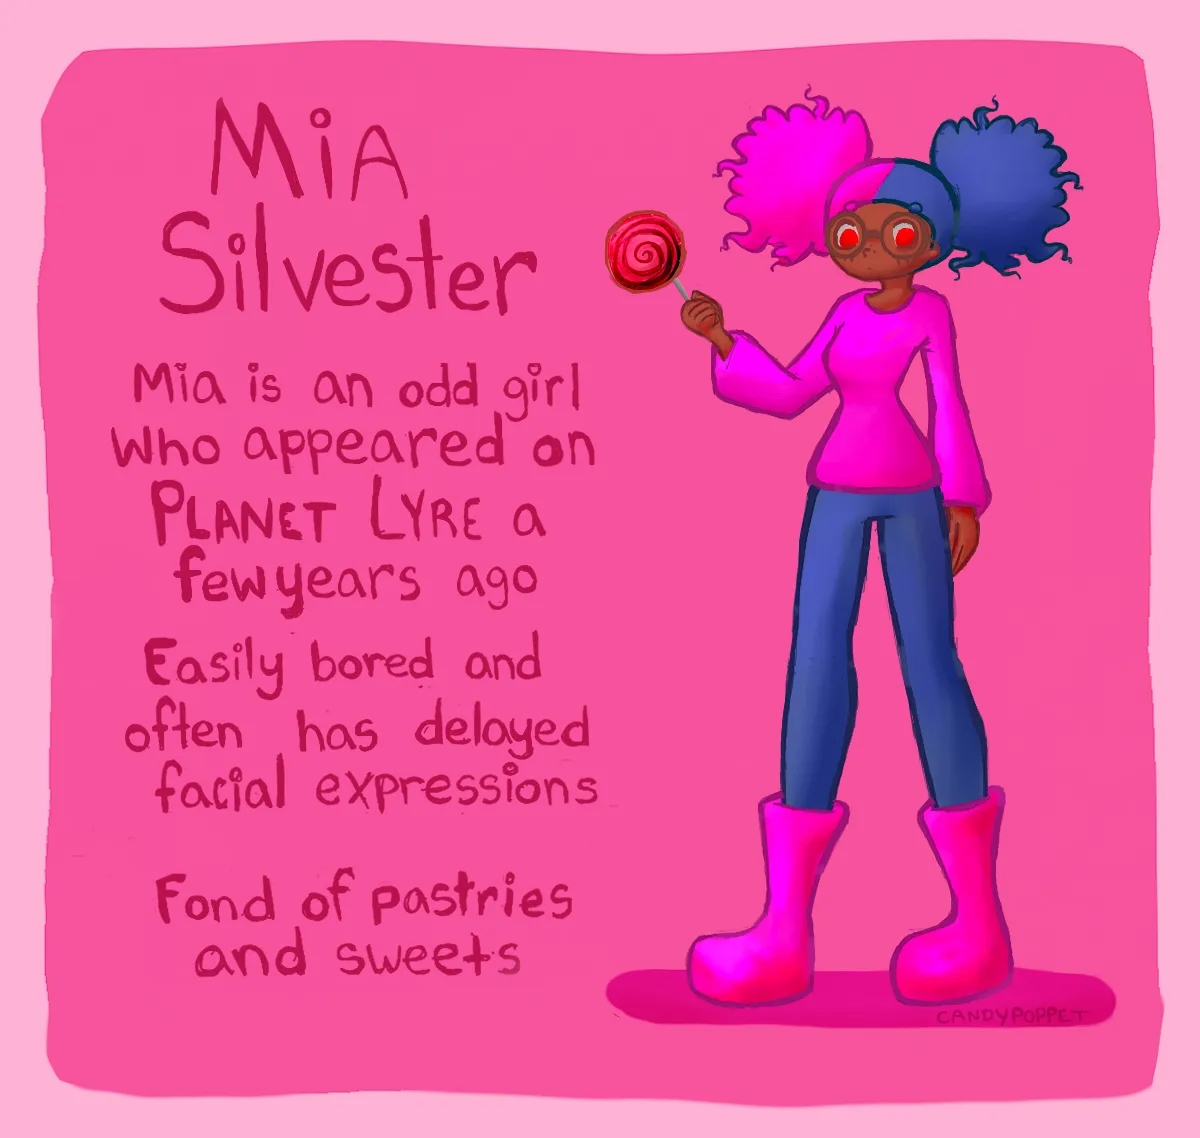 MiA
Silvester
Mia is an odd girl
who appeared on
PLANET LYRE a
few years ago
Easily bored and
often has delayed
facial expressions
Fond of pastries
and sweets
CANDYPOPPET